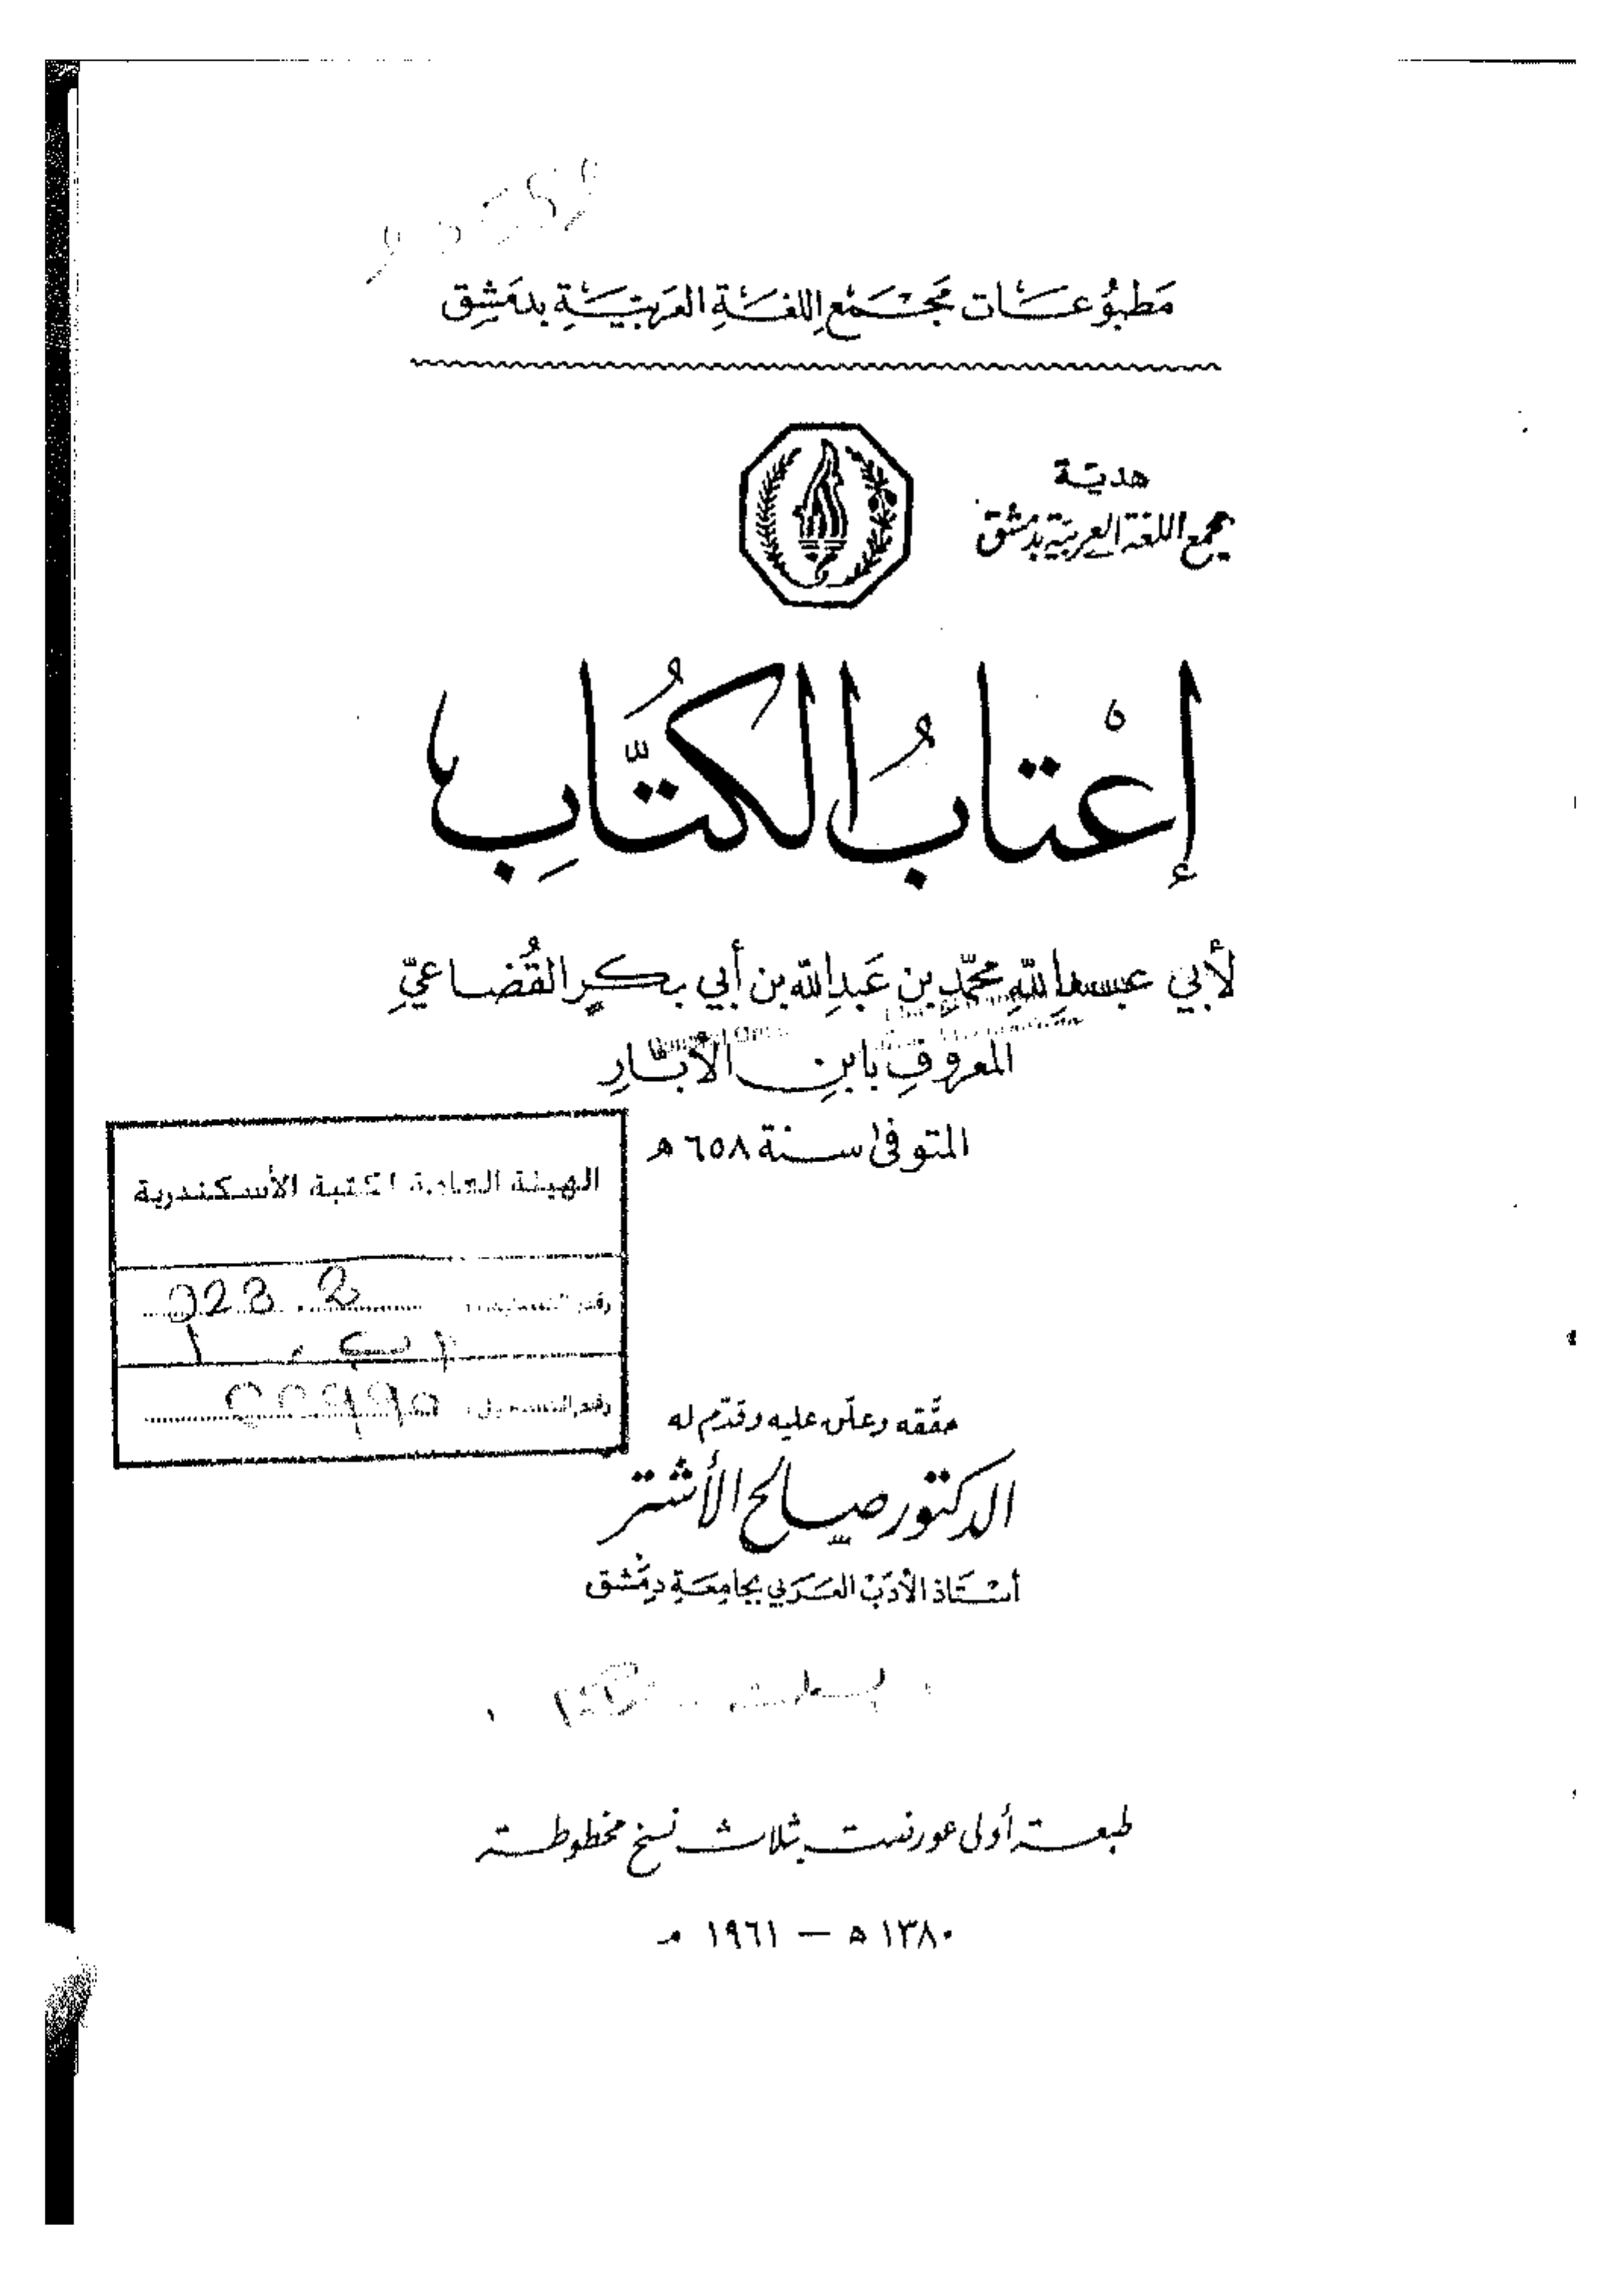 مَطبُوعَات مَجْمَع اللغَةِ العَربيَّةِ بدمَشِق
هدية
مجمع اللغة العربية بدمشق
إعْتابُ الكتَّابِ
لأبي عبداللهِ محمّدِ بن عَبدالله بن أبي بكرٍ القُضاعيِّ
المعروفِ بابنِ الأبّارِ
المتوفى سنة ٦٥٨ هـ
الهيئة العامة لمكتبة الأسكندرية
رقم التصنيف: 928.2
رقم التسجيل:
حقّقه وعلّق عليه وقدّم له
الدكتور صالح الأشتر
أسْتَاذ الأدَبْ العَرَبي بجَامِعَةِ دِمَشْق
طبعة أولى عورضت بثلاث نسخ مخطوطة
١٣٨٠ هـ — ١٩٦١ م